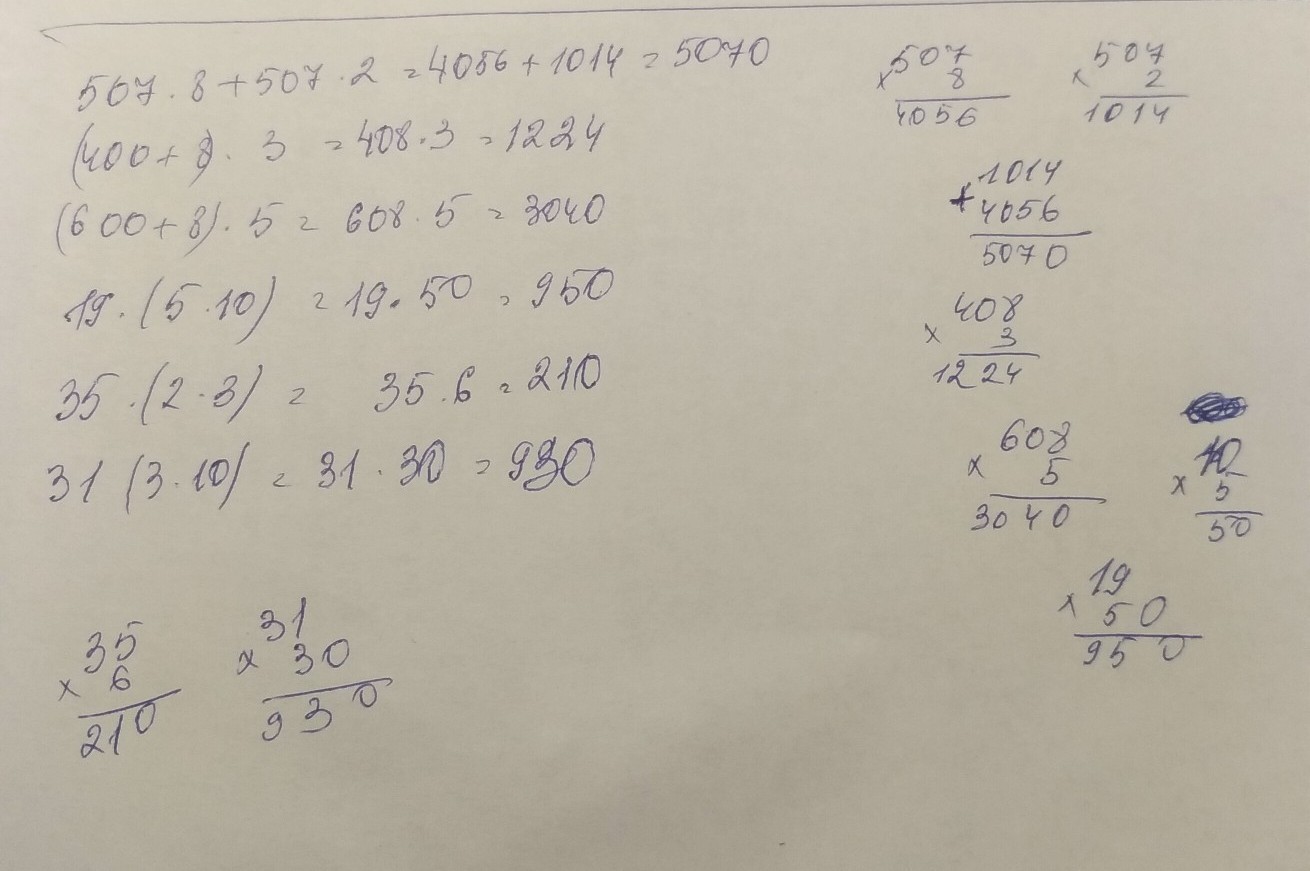 507 · 8 + 507 · 2 = 4056 + 1014 = 5070
(400 + 8) · 3 = 408 · 3 = 1224
(600 + 8) · 5 = 608 · 5 = 3040
19 · (5 · 10) = 19 · 50 = 950
35 · (2 · 3) = 35 · 6 = 210
31 (3 · 10) = 31 · 30 = 930
507
× 8
4056
507
× 2
1014
1014
+ 4056
5070
408
× 3
1224
608
× 5
3040
10
× 5
50
19
× 50
950
35
× 6
210
31
× 30
930